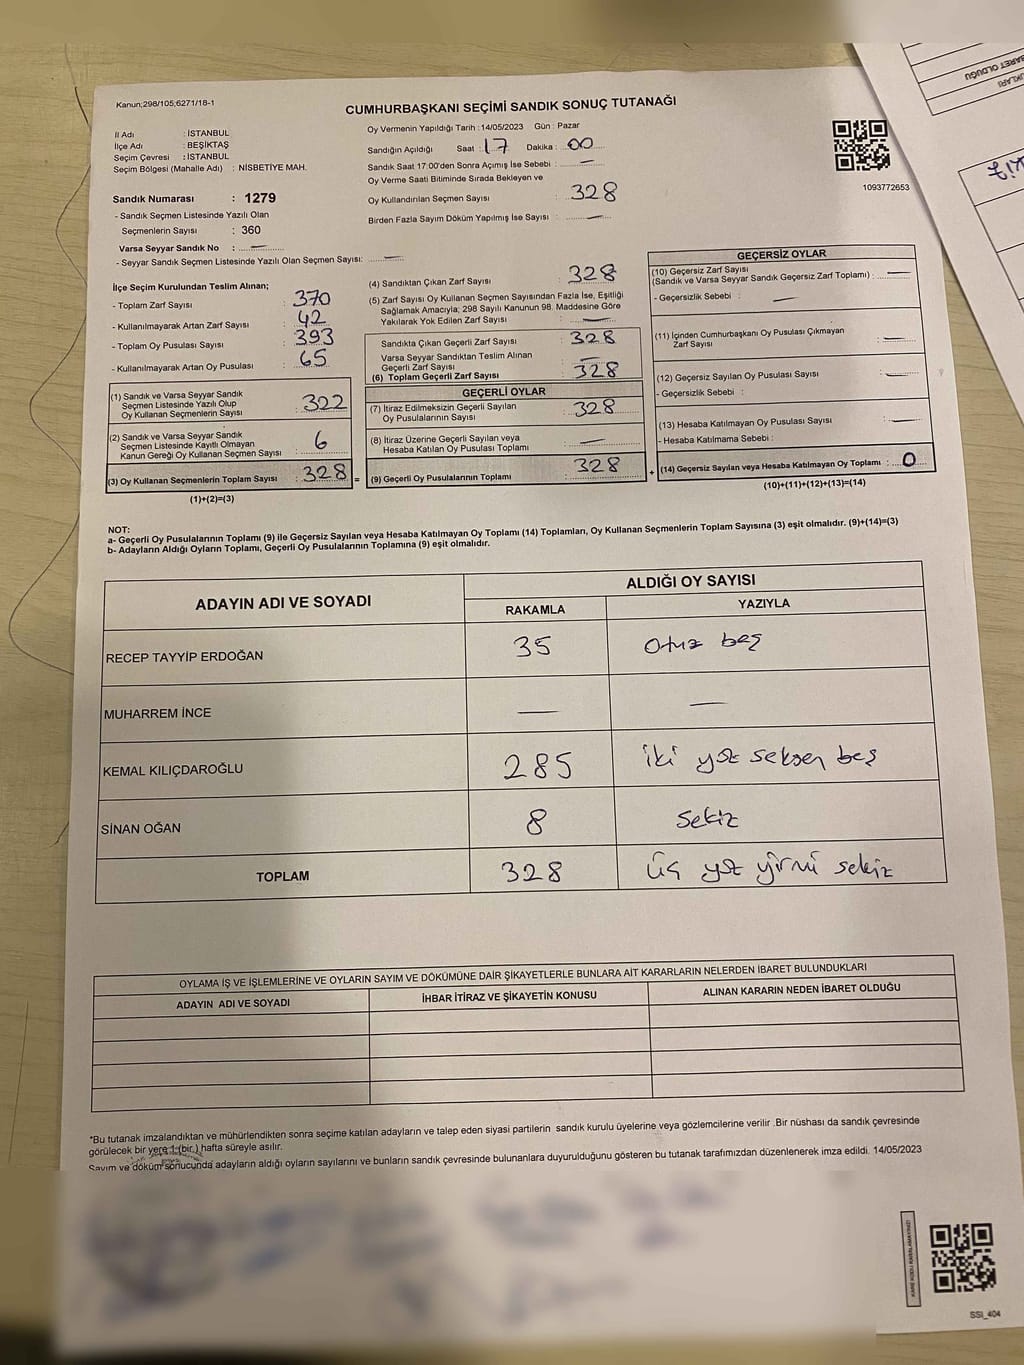 Kanun;298/105;6271/18-1
CUMHURBAŞKANI SEÇİMİ SANDIK SONUÇ TUTANAĞI
İl Adı : İSTANBUL
İlçe Adı : BEŞİKTAŞ
Seçim Çevresi : İSTANBUL
Seçim Bölgesi (Mahalle Adı) : NİSBETİYE MAH.
Sandık Numarası : 1279
- Sandık Seçmen Listesinde Yazılı Olan
Seçmenlerin Sayısı : 360
Varsa Seyyar Sandık No : —
- Seyyar Sandık Seçmen Listesinde Yazılı Olan Seçmen Sayısı: —
Oy Vermenin Yapıldığı Tarih : 14/05/2023 Gün : Pazar
Sandığın Açıldığı Saat : 17 Dakika : 00
Sandık Saat 17:00'den Sonra Açımış İse Sebebi : —
Oy Verme Saati Bitiminde Sırada Bekleyen ve
Oy Kullandırılan Seçmen Sayısı : 328
Birden Fazla Sayım Döküm Yapılmış İse Sayısı : —
1093772653
İlçe Seçim Kurulundan Teslim Alınan;
- Toplam Zarf Sayısı : 370
- Kullanılmayarak Artan Zarf Sayısı : 42
- Toplam Oy Pusulası Sayısı : 393
- Kullanılmayarak Artan Oy Pusulası : 65
(1) Sandık ve Varsa Seyyar Sandık
Seçmen Listesinde Yazılı Olup
Oy Kullanan Seçmenlerin Sayısı : 322
(2) Sandık ve Varsa Seyyar Sandık
Seçmen Listesinde Kayıtlı Olmayan
Kanun Gereği Oy Kullanan Seçmen Sayısı : 6
(3) Oy Kullanan Seçmenlerin Toplam Sayısı : 328 =
(1)+(2)=(3)
(4) Sandıktan Çıkan Zarf Sayısı : 328
(5) Zarf Sayısı Oy Kullanan Seçmen Sayısından Fazla İse, Eşitliği
Sağlamak Amacıyla; 298 Sayılı Kanunun 98. Maddesine Göre
Yakılarak Yok Edilen Zarf Sayısı : —
Sandıkta Çıkan Geçerli Zarf Sayısı : 328
Varsa Seyyar Sandıktan Teslim Alınan
Geçerli Zarf Sayısı : —
(6) Toplam Geçerli Zarf Sayısı : 328
GEÇERLİ OYLAR
(7) İtiraz Edilmeksizin Geçerli Sayılan
Oy Pusulalarının Sayısı : 328
(8) İtiraz Üzerine Geçerli Sayılan veya
Hesaba Katılan Oy Pusulası Toplamı : —
(9) Geçerli Oy Pusulalarının Toplamı : 328 +
GEÇERSİZ OYLAR
(10) Geçersiz Zarf Sayısı
(Sandık ve Varsa Seyyar Sandık Geçersiz Zarf Toplamı) : —
- Geçersizlik Sebebi : —
(11) İçinden Cumhurbaşkanı Oy Pusulası Çıkmayan
Zarf Sayısı : —
(12) Geçersiz Sayılan Oy Pusulası Sayısı : —
- Geçersizlik Sebebi :
(13) Hesaba Katılmayan Oy Pusulası Sayısı : —
- Hesaba Katılmama Sebebi :
(14) Geçersiz Sayılan veya Hesaba Katılmayan Oy Toplamı : 0
(10)+(11)+(12)+(13)=(14)
NOT:
a- Geçerli Oy Pusulalarının Toplamı (9) ile Geçersiz Sayılan veya Hesaba Katılmayan Oy Toplamı (14) Toplamları, Oy Kullanan Seçmenlerin Toplam Sayısına (3) eşit olmalıdır. (9)+(14)=(3)
b- Adayların Aldığı Oyların Toplamı, Geçerli Oy Pusulalarının Toplamına (9) eşit olmalıdır.
ADAYIN ADI VE SOYADI ALDIĞI OY SAYISI
RAKAMLA YAZIYLA
RECEP TAYYİP ERDOĞAN 35 Otuz beş
MUHARREM İNCE — —
KEMAL KILIÇDAROĞLU 285 iki yüz seksen beş
SİNAN OĞAN 8 Sekiz
TOPLAM 328 Üç yüz yirmi sekiz
OYLAMA İŞ VE İŞLEMLERİNE VE OYLARIN SAYIM VE DÖKÜMÜNE DAİR ŞİKAYETLERLE BUNLARA AİT KARARLARIN NELERDEN İBARET BULUNDUKLARI
ADAYIN ADI VE SOYADI İHBAR İTİRAZ VE ŞİKAYETİN KONUSU ALINAN KARARIN NEDEN İBARET OLDUĞU
*Bu tutanak imzalandıktan ve mühürlendikten sonra seçime katılan adayların ve talep eden siyasi partilerin sandık kurulu üyelerine veya gözlemcilerine verilir .Bir nüshası da sandık çevresinde
görülecek bir yere 1 (bir.) hafta süreyle asılır.
Sayım ve döküm sonucunda adayların aldığı oyların sayılarını ve bunların sandık çevresinde bulunanlara duyurulduğunu gösteren bu tutanak tarafımızdan düzenlenerek imza edildi. 14/05/2023
SSI_404